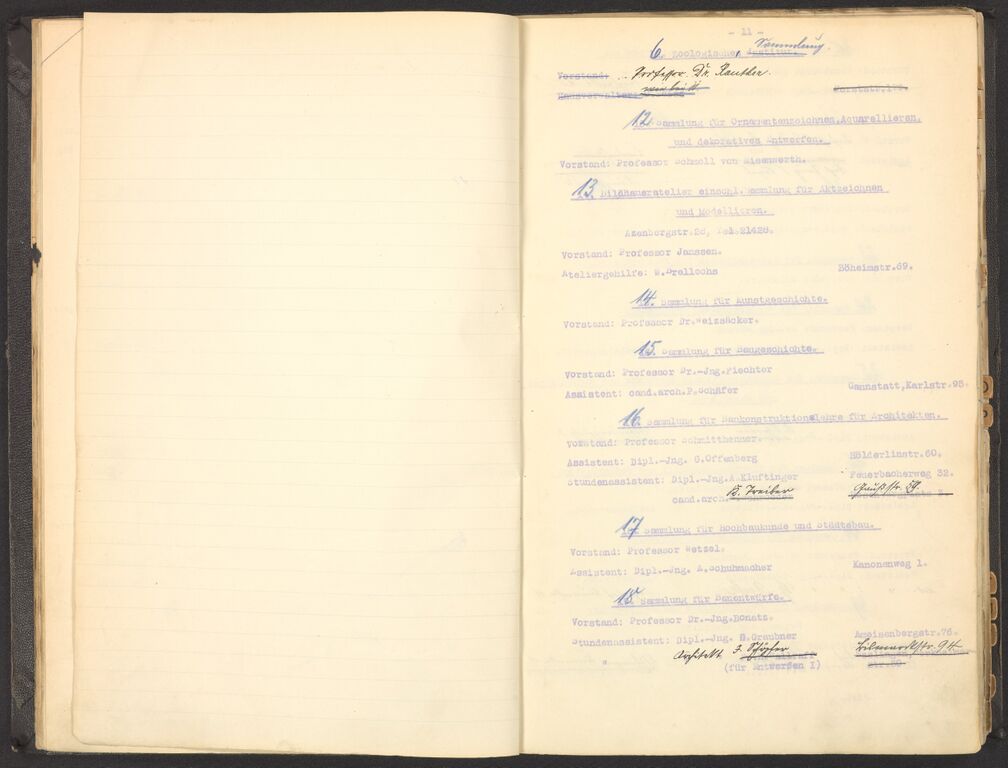 - 11 -
6. Zoologische Sammlung.
Vorstand: Professor Dr. Rauther.
Hausverwalter:
12. Sammlung für Ornamentenzeichnen, Aquarellieren,
und dekoratives Entwerfen.
Vorstand: Professor Schmoll von Eisenwerth.
13. Bildhaueratelier einschl. Sammlung für Aktzeichnen
und Modellieren.
Azenbergstr.28, Tel.21428.
Vorstand: Professor Janssen.
Ateliergehilfe: W.Drellochs Böheimstr.69.
14. Sammlung für Kunstgeschichte.
Vorstand: Professor Dr.Weizsäcker.
15. Sammlung für Baugeschichte.
Vorstand: Professor Dr.-Jng.Fiechter
Assistent: cand.arch.P.Schäfer Cannstatt,Karlstr.98.
16. Sammlung für Baukonstruktionslehre für Architekten.
Vorstand: Professor Schmitthenner.
Assistent: Dipl.-Jng. G.Offenberg Hölderlinstr.60.
Stundenassistent: Dipl.-Jng.A.Kluftinger Feuerbacherweg 32.
cand.arch. K. Treiber Gaußstr. 59.
17. Sammlung für Hochbaukunde und Städtebau.
Vorstand: Professor Wetzel.
Assistent: Dipl.-Jng. A.Schuhmacher Kanonenweg 1.
18. Sammlung für Bauentwürfe.
Vorstand: Professor Dr.-Jng.Bonatz.
Stundenassistent: Dipl.-Jng. G.Graubner Ameisenbergstr.76.
" Architekt F. Schäfer Bismarckstr. 94
(für Entwerfen I)